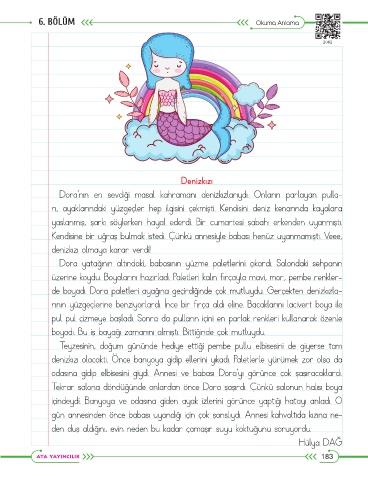 6. BÖLÜM
Okuma Anlama
Denizkızı
Dora'nın en sevdiği masal kahramanı denizkızlarıydı. Onların parlayan pulla-
rı, ayaklarındaki yüzgeçler hep ilgisini çekmişti. Kendisini deniz kenarında kayalara
yaslanmış, şarkı söylerken hayal ederdi. Bir cumartesi sabahı erkenden uyanmıştı.
Kendisine bir uğraş bulmak istedi. Çünkü annesiyle babası henüz uyanmamıştı. Veee,
denizkızı olmaya karar verdi!
Dora yatağının altındaki, babasının yüzme paletlerini çıkardı. Salondaki sehpanın
üzerine koydu. Boyalarını hazırladı. Paletleri kalın fırçayla mavi, mor, pembe renkler-
de boyadı. Dora paletleri ayağına geçirdiğinde çok mutluydu. Gerçekten denizkızla-
rının yüzgeçlerine benziyorlardı. İnce bir fırça aldı eline. Bacaklarını lacivert boya ile
pul, pul çizmeye başladı. Sonra da pulların içini en parlak renkleri kullanarak özenle
boyadı. Bu iş bayağı zamanını almıştı. Bittiğinde çok mutluydu.
Teyzesinin, doğum gününde hediye ettiği pembe pullu elbisesini de giyerse tam
denizkızı olacaktı. Önce banyoya gidip ellerini yıkadı. Paletlerle yürümek zor olsa da
odasına gidip elbisesini giydi. Annesi ve babası Dora'yı görünce çok şaşıracaklardı.
Tekrar salona döndüğünde onlardan önce Dora şaşırdı. Çünkü salonun halısı boya
içindeydi. Banyoya ve odasına giden ayak izlerini görünce yaptığı hatayı anladı. O
gün annesinden önce babası uyandığı için çok şanslıydı. Annesi kahvaltıda kızına ne-
den duş aldığını, evin neden bu kadar çamaşır suyu koktuğunu soruyordu.
Hülya DAĞ
ATA YAYINCILIK
183